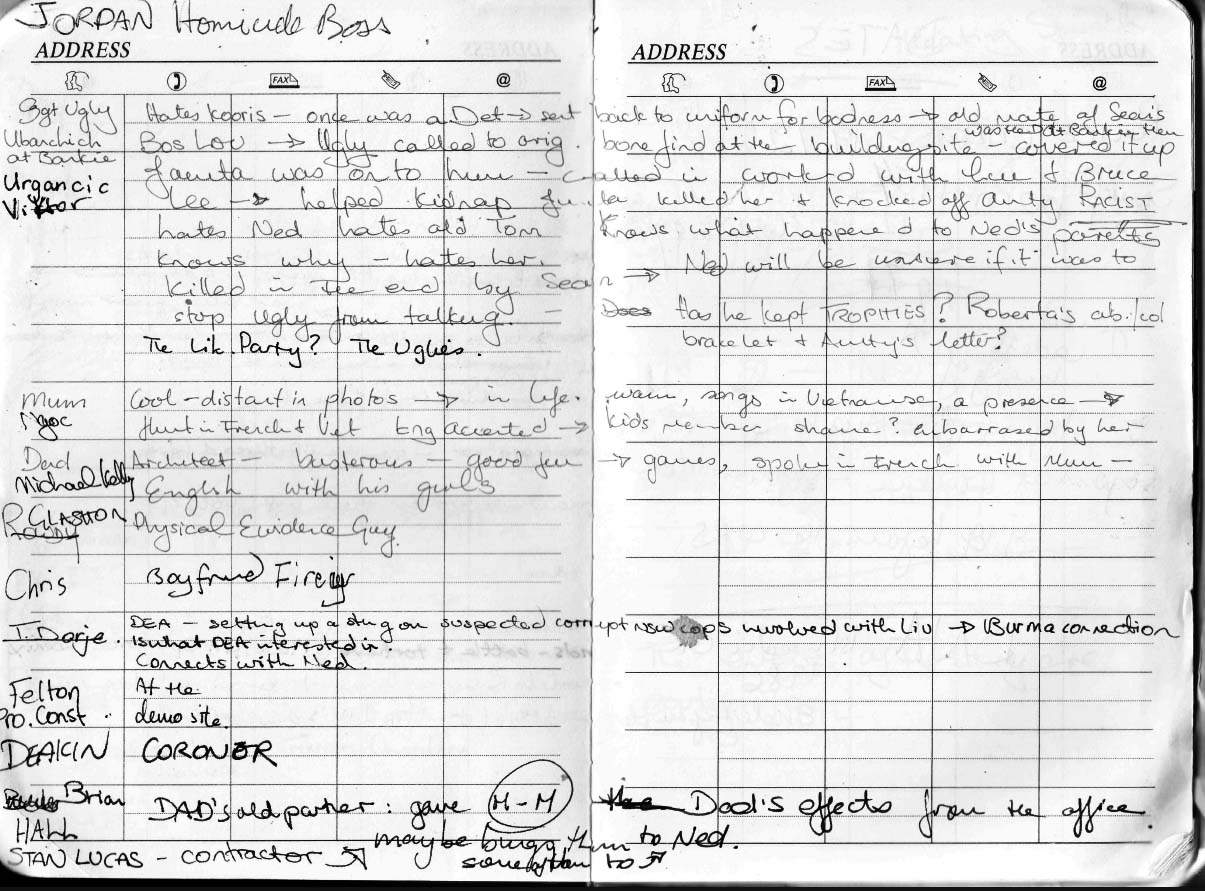 JORDAN Homicide Boss
ADDRESS ADDRESS
FAX @ FAX @
Sgt Ugly Hates Kooris – once was a Det → sent back to uniform for badness → old mate of Sean's
Ubanchich Bos Lov → Ugly called to orig. bone find at the building site – covered it up
was the Dat Barkie then
at Barkie
Urgancic Viktor
Jaunta was on to him – called in worked with Lee & Bruce
Lee → helped kidnap killed her & knocked off Aunty RACIST
hates Ned hates old Tom Knows what happened to Ned's parents
Knows why – hates her. → Ned will be unsure if it was to
Killed in the end by Sean
stop Ugly from talking. – Has he kept TROPHIES? Roberta's ab/col
The Lik. Party? The Uglies. bracelet & Aunty's letter?
Mum Cool – distant in photos → in life. warm, songs in Vietnamse, a presence →
Ngoc in French & Viet Eng accented → kids shame? embarrased by her
Dad Architect – busterous – good fun → games, spoke in French with Mum –
Michael Kelly English with his girls
R. GLASTON Physical Evidence Guy.
Chris Boyfriend
T. Dorje. DEA – setting up a sting on suspected corrupt NSW cops involved with Liv → Burma connection
Is what DEA interested in
Connects with Ned.
Felton At the
Pro. Const. demo site.
DEAKIN CORONER
Brian HALL DAD's old partner: gave M-M Dad's effects from the office.
maybe brings them to Ned.
STAN LUCAS – contractor to